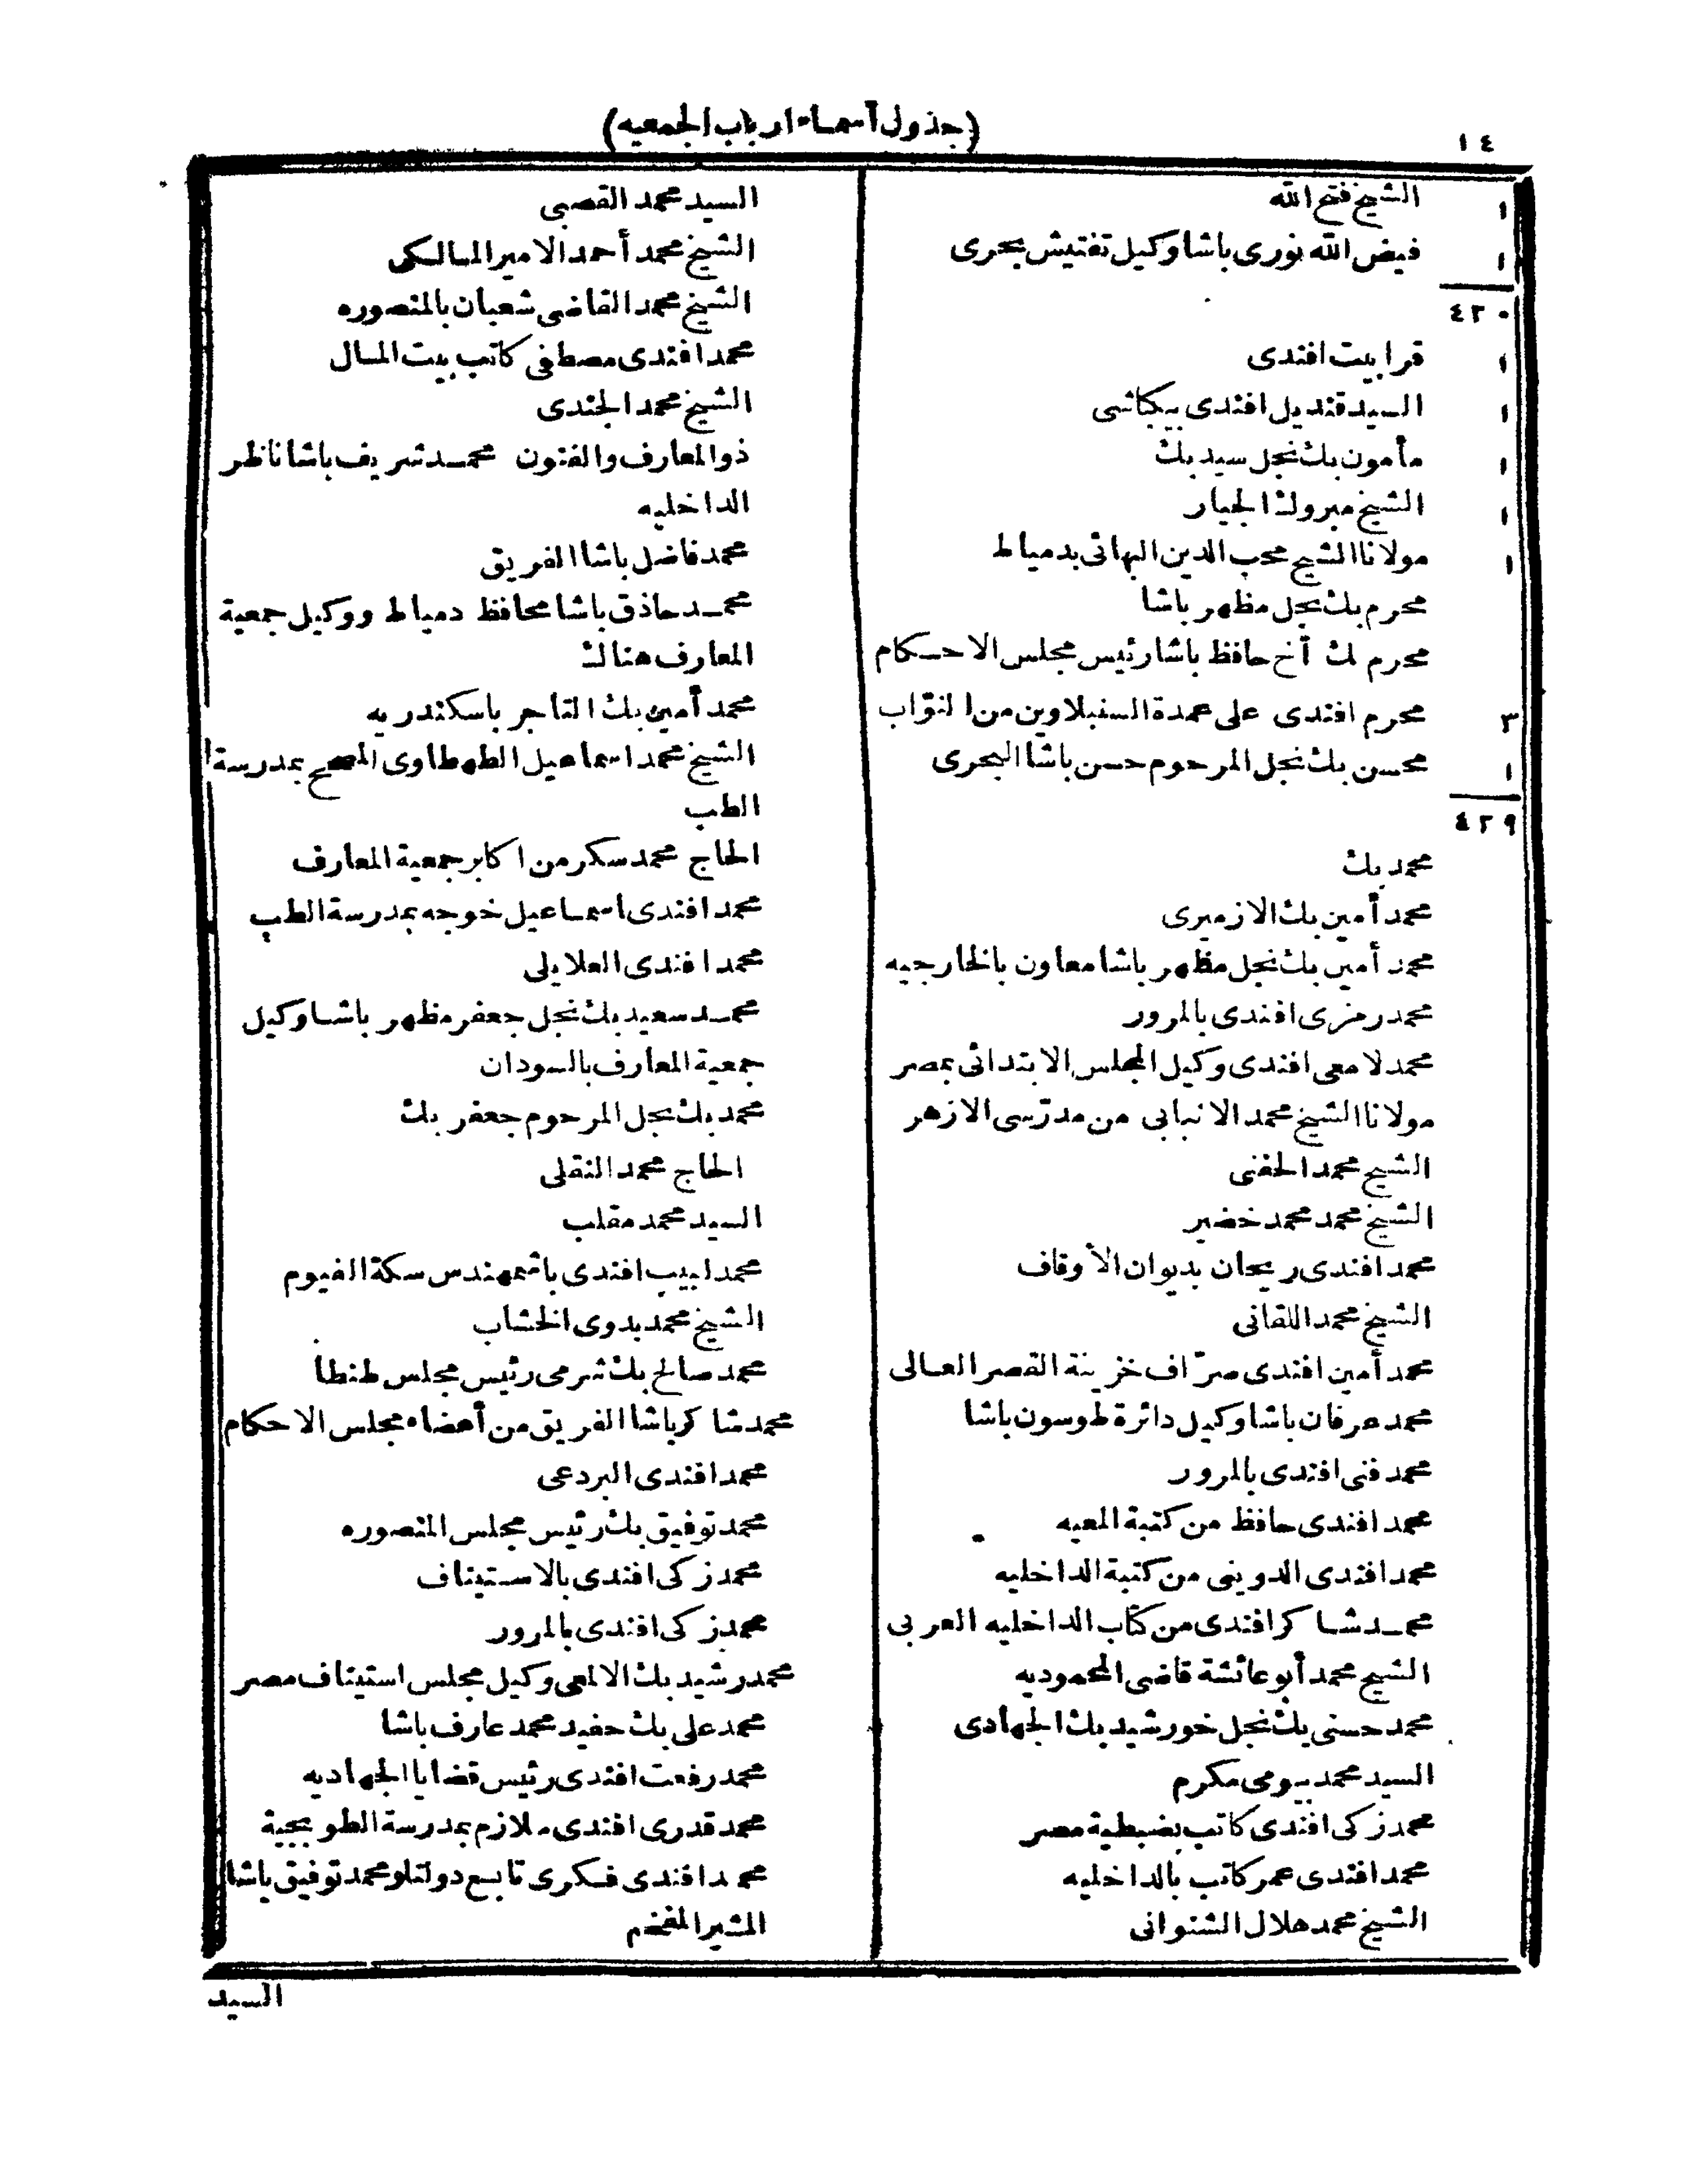 ١٤
(جذول أسماء ارباب الجمعيه)
١ الشيخ فتح الله
١ فيض الله نورى باشا وكيل تفتيش بحرى
٤٢٠
١ قرابيت افندى
١ السيد قنديل افندى بيكباشى
١ مأمون بك نجل سيد بك
١ الشيخ مبروك الجيار
١ مولانا الشيخ محب الدين البهائى بدمياط
محرم بك نجل مظهر باشا
محرم بك أخ حافظ باشا رئيس مجلس الاحكام
٣ محرم افندى على عمدة السنبلاوين من النوّاب
١ محسن بك نجل المرحوم حسن باشا البحرى
٤٢٩
محمد بك
محمد أمين بك الازميرى
محمد أمين بك نجل مظهر باشا معاون بالخارجيه
محمد رمزى افندى بالمرور
محمد لامعى افندى وكيل المجلس الابتدائى بمصر
مولانا الشيخ محمد الانبابى من مدرّسى الازهر
الشيخ محمد الحفنى
الشيخ محمد محمد خضير
محمد افندى ريحان بديوان الأوقاف
الشيخ محمد اللقانى
محمد أمين افندى صرّاف خزينة القصر العالى
محمد عرفان باشا وكيل دائرة طوسون باشا
محمد فنى افندى بالمرور
محمد افندى حافظ من كتبة المعيه
محمد افندى الدوينى من كتبة الداخليه
محمد شاكر افندى من كتّاب الداخليه العربى
الشيخ محمد أبو عائشة قاضى المحموديه
محمد حسنى بك نجل خورشيد بك الجهادى
السيد محمد بيومى مكرم
محمد زكى افندى كاتب بضبطية مصر
محمد افندى عمر كاتب بالداخليه
الشيخ محمد هلال الشنوانى
السيد محمد القصبى
الشيخ محمد أحمد الامير المالكى
الشيخ محمد القاضى شعبان بالمنصوره
محمد افندى مصطفى كاتب بيت المال
الشيخ محمد الجندى
ذو المعارف والفنون محمد شريف باشا ناظر
الداخليه
محمد فاضل باشا الفريق
محمد حاذق باشا محافظ دمياط ووكيل جمعية
المعارف هنالك
محمد أمين بك التاجر باسكندريه
الشيخ محمد اسماعيل الطهطاوى المصحح بمدرسة
الطب
الحاج محمد سكر من اكابر جمعية المعارف
محمد افندى اسماعيل خوجه بمدرسة الطب
محمد افندى العلايلى
محمد سعيد بك نجل جعفر مظهر باشا وكيل
جمعية المعارف بالسودان
محمد بك نجل المرحوم جعفر بك
الحاج محمد النقلى
السيد محمد مقلب
محمد لبيب افندى باشمهندس سكة الفيوم
الشيخ محمد بدوى الخشاب
محمد صالح بك شرمى رئيس مجلس طنطا
محمد شاكر باشا الفريق من أعضاء مجلس الاحكام
محمد افندى البردعى
محمد توفيق بك رئيس مجلس المنصوره
محمد زكى افندى بالاستيناف
محمد زكى افندى بالمرور
محمد رشيد بك الالمعى وكيل مجلس استيناف مصر
محمد على بك حفيد محمد عارف باشا
محمد رفعت افندى رئيس قضايا الجهاديه
محمد قدرى افندى ملازم بمدرسة الطوبجية
محمد افندى فكرى تابع دولتلو محمد توفيق باشا
المشير المفخم
السيد